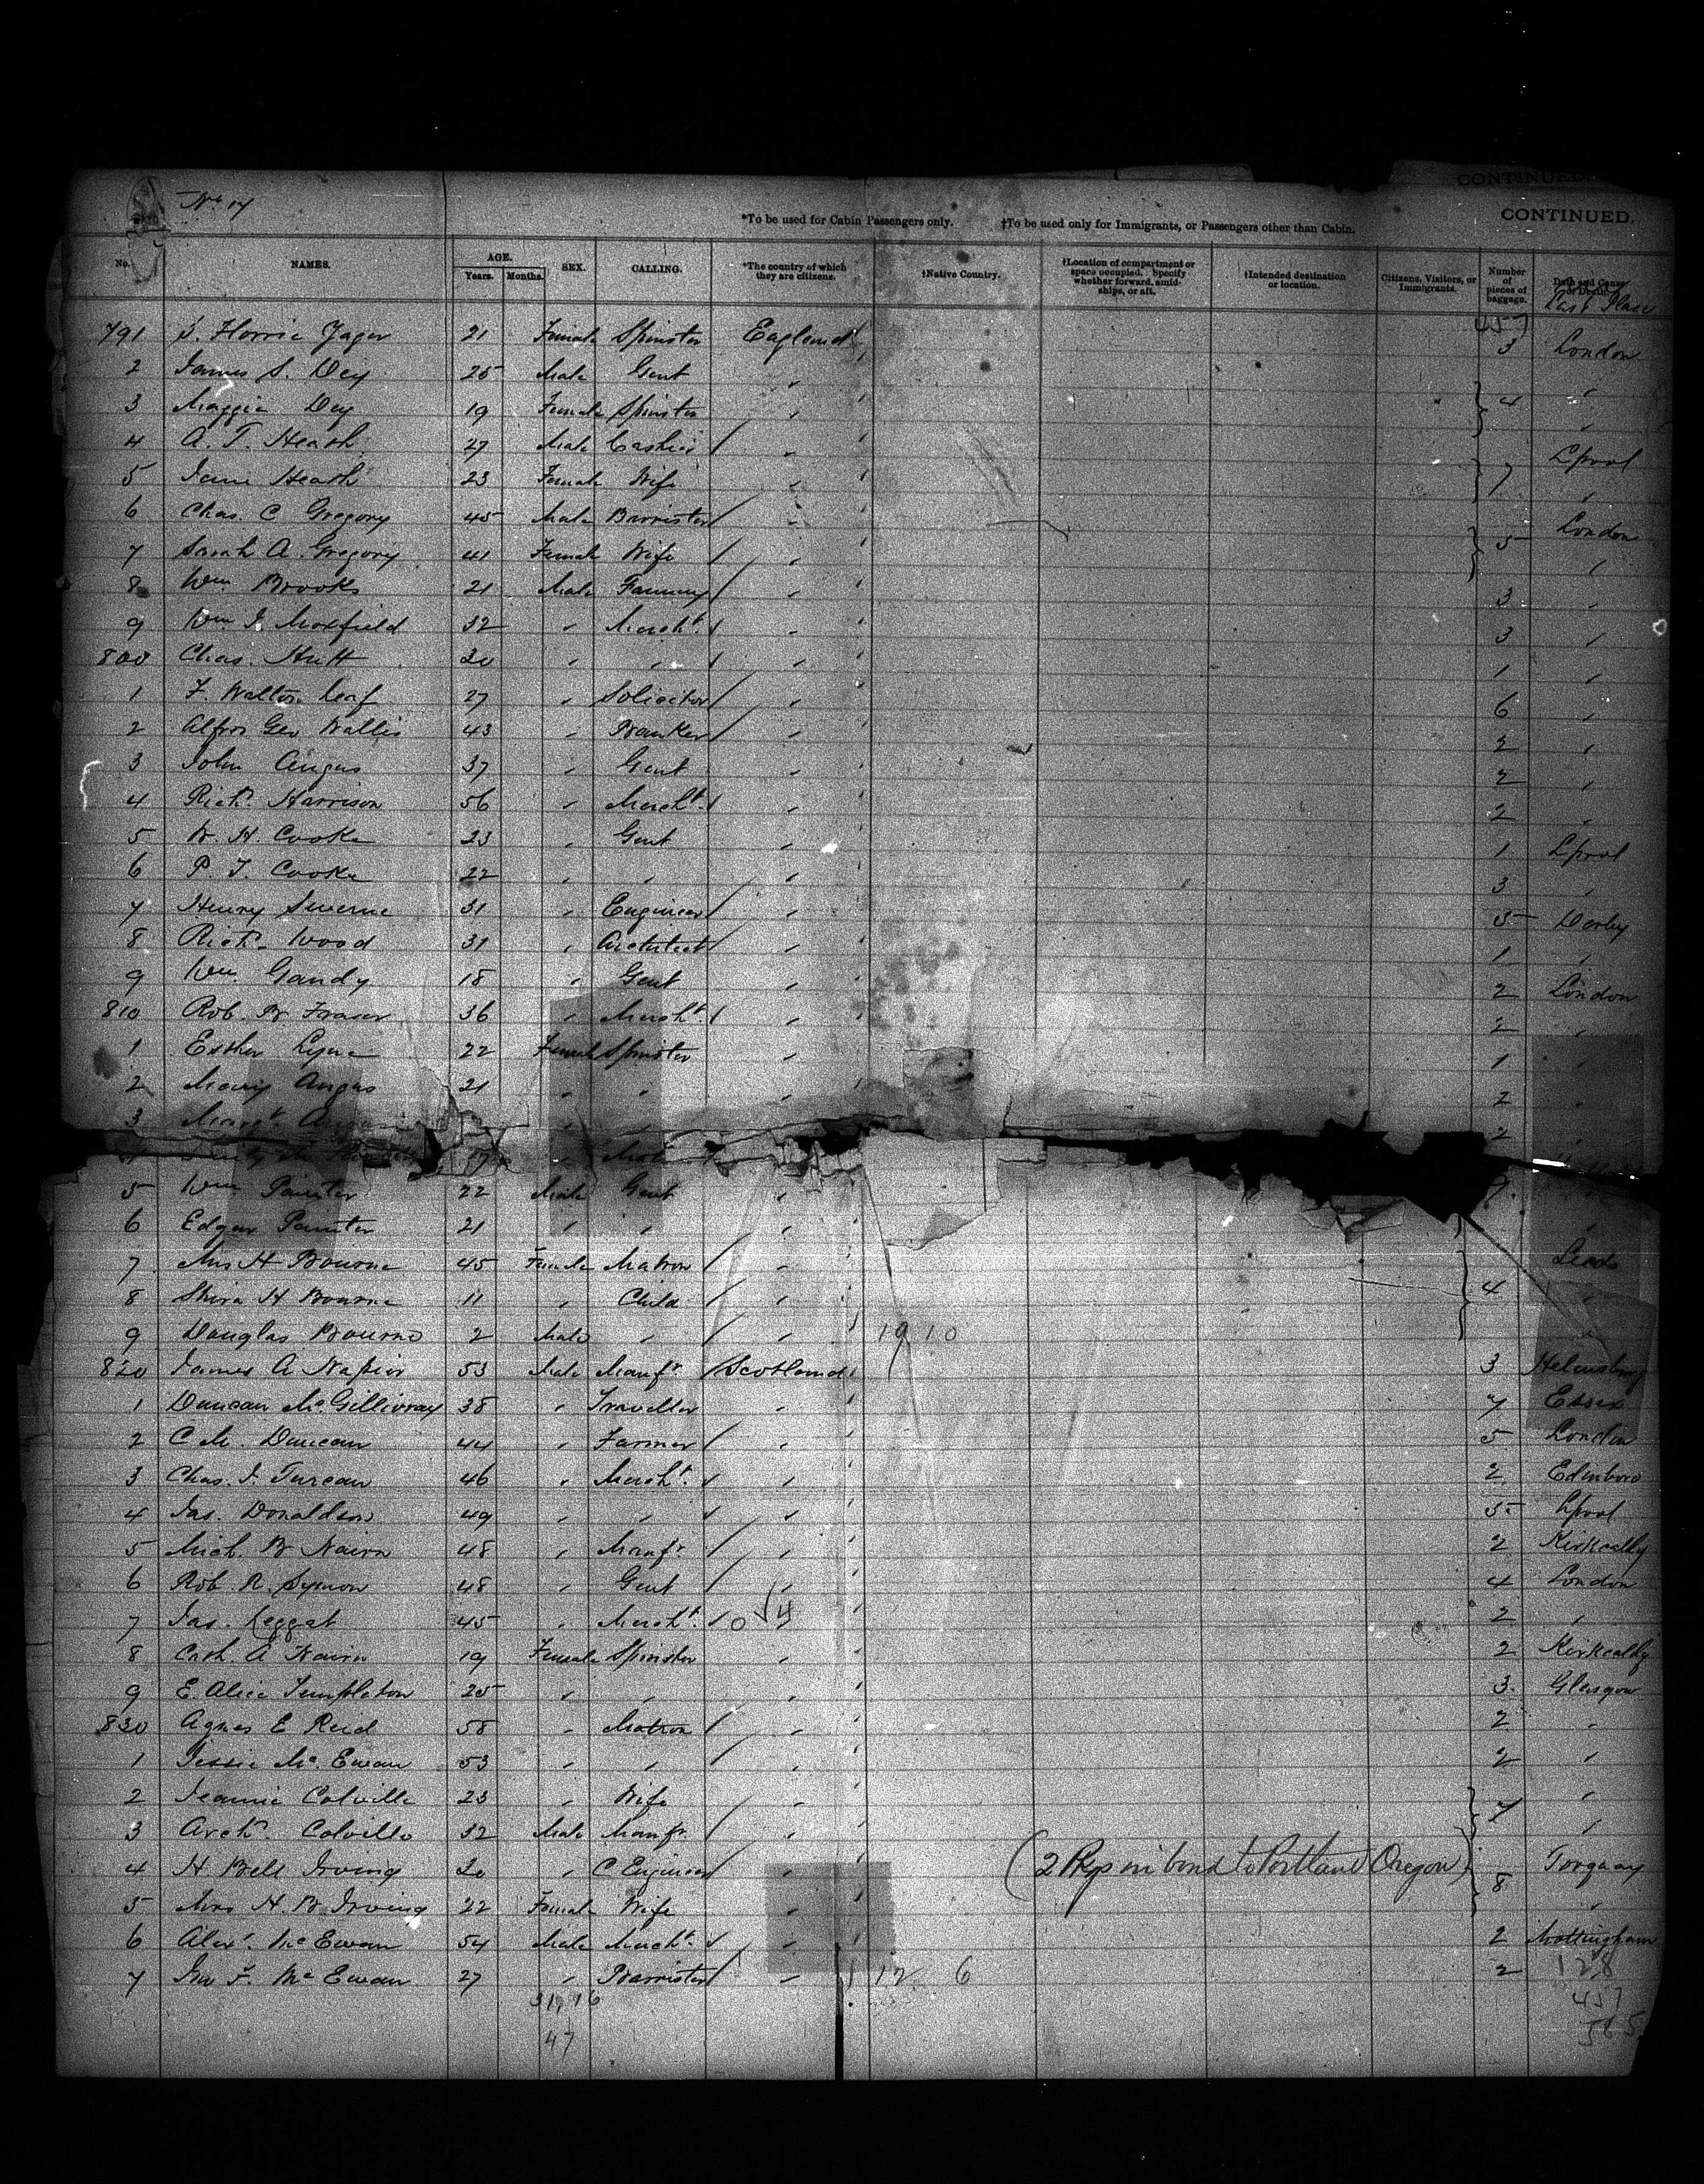 No 17
CONTINUED.
CONTINUED.
*To be used for Cabin Passengers only. †To be used only for Immigrants, or Passengers other than Cabin.
No. NAMES. AGE. Years. Months. SEX. CALLING. *The country of which they are citizens. †Native Country. †Location of compartment or space occupied. Specify whether forward, amidships, or aft. †Intended destination or location. Citizens, Visitors, or Immigrants. Number of pieces of baggage. Date and Cause of Death.
Last Place
457
791 S. Florrie Jager 21 Female Spinster England 3 London
2 James S. Dey 25 Male Gent " "
3 Maggie Dey 19 Female Spinster " 4 "
4 A. T. Heath 27 Male Cashier " Lpool
5 Jane Heath 23 Female Wife " 7 "
6 Chas. C Gregory 45 Male Barrister " London
7 Sarah A Gregory 41 Female Wife " 5 "
8 Wm Brooks 21 Male " 3 "
9 Wm J. Moxfield 32 " Mercht. " 3 "
800 Chas. 20 " " " 1 "
1 F. Walton Leaf 27 " Solicitor " 6 "
2 Geo Wallis 43 " Banker " 2 "
3 John Angus 37 " Gent " 2 "
4 Richd. Harrison 56 " Mercht. " 2 "
5 W. H. Cooke 23 " Gent " 1 Lpool
6 P. J. Cooke 22 " " " 3 "
7 Henry Severne 31 " Engineer " 5 Derby
8 Richd. Wood 31 " Architect " 1 "
9 Wm. Gandy 18 " Gent " 2 London
810 Rob. B Fraser 36 " Mercht. " 2 "
1 Esther 22 Female Spinster " 1 "
2 Mary Angus 21 " " " 2 "
3 Margt. " " 2 "
5 Wm Painter 22 Male Gent "
6 Edgar Painter 21 " " " "
7 Mrs H Bourne 45 Female Matron " Leeds
8 H Bourne 11 " Child " 4 "
9 Douglas Bourne 2 Male " " 19 10 "
820 James A Napier 53 Male Manfr. Scotland 3 Helensburg
1 Duncan McGillivray 38 " Traveller " 7 Essex
2 C M. Duncan 44 " Farmer " 5 London
3 Chas. J. 46 " Mercht. " 2 Edinboro
4 Jas. Donaldson 49 " " " 5 Lpool
5 Mich. B Nairn 48 " Manfr. " 2 Kirkcaldy
6 Rob. R. Symon 48 " Gent " 4 London
7 Jas. Leggat 45 " Mercht. 0 4 2 "
8 Cath. A Nairn 19 Female Spinster " 2 Kirkcaldy
9 E. Alice Templeton 25 " " " 3 Glasgow
830 Agnes E Reid 58 " Matron " 2 "
1 Jessie McEwan 53 " " " 2 "
2 Jeannie Colville 23 " Wife " "
3 Archd. Colville 32 Male Manfr. " 7 "
4 H Bell Irving 30 " C Engineer " (2 Pkgs in bond to Portland Oregon) 8 Torquay
5 Mrs H. B. Irving 22 Female Wife " "
6 Alexr. McEwan 54 Male Mercht. " 2 Nottingham
7 Jno F. McEwan 27 " Barrister " 12 6 2 128
31 16 457
47 585